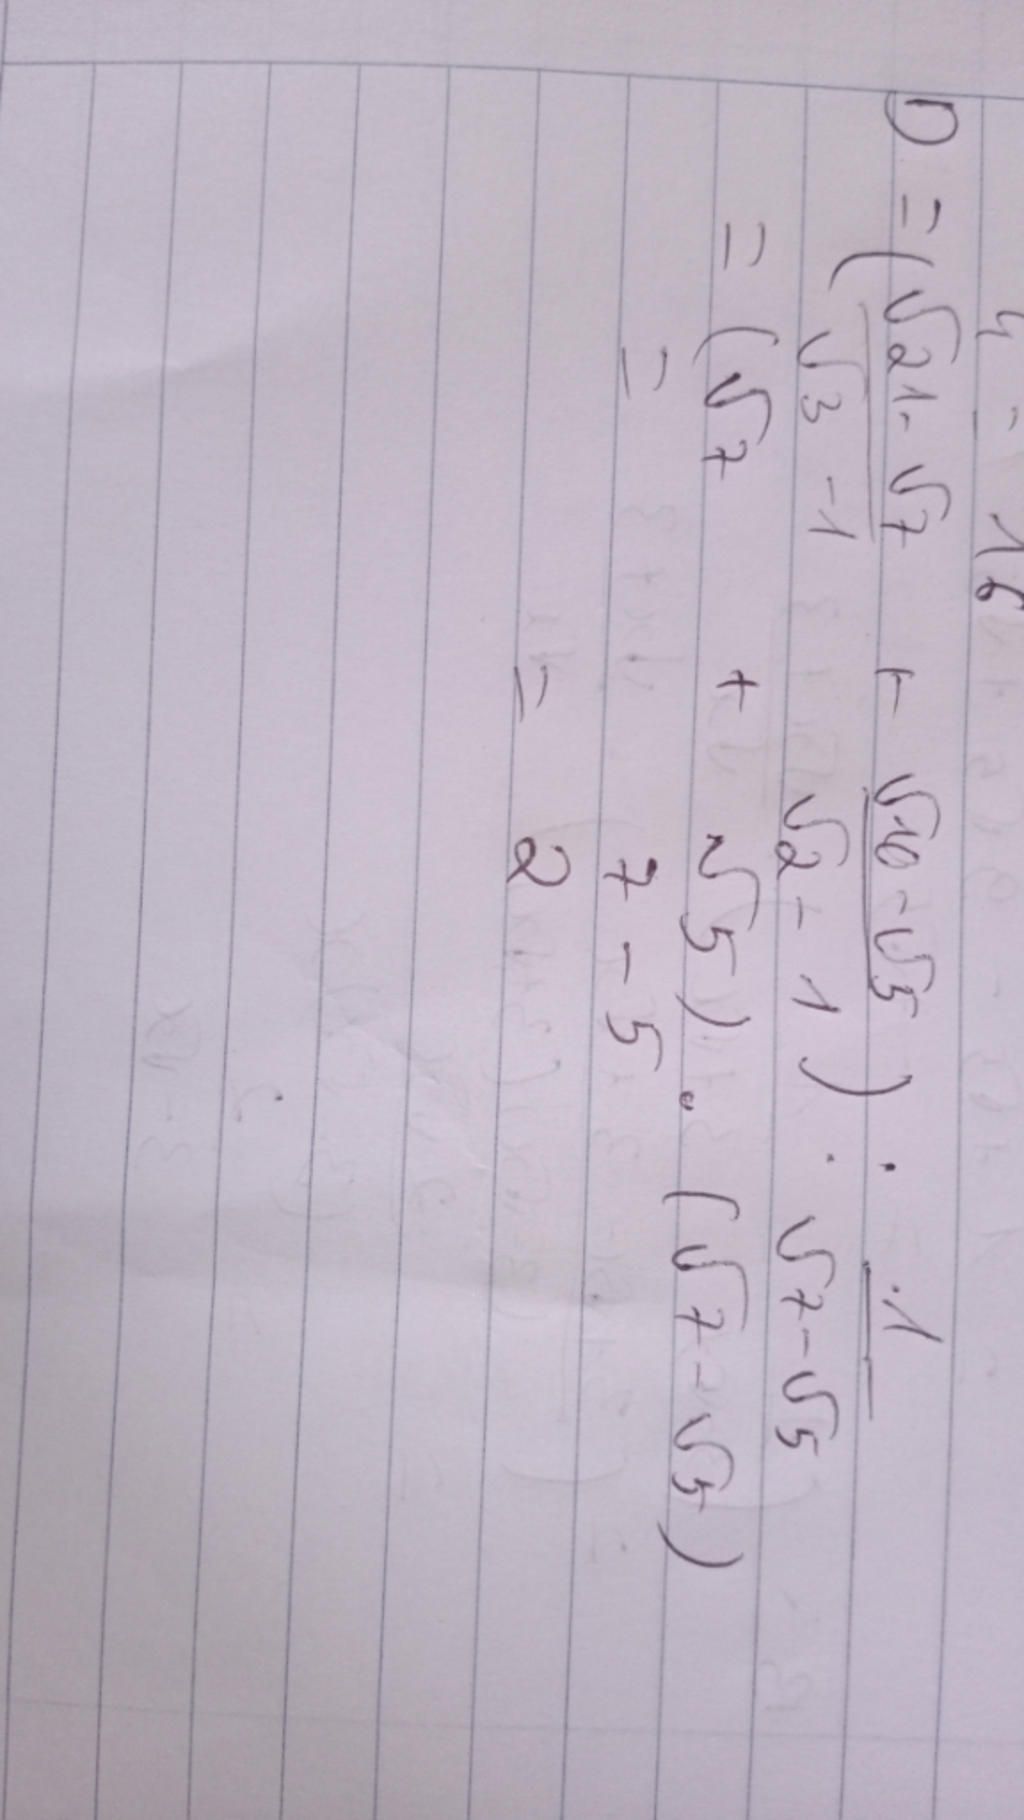 4 = 16
D = (√21 - √7 / √3 - 1 + √10 - √5 / √2 - 1) : 1 / √7 - √5
= (√7 + √5) . (√7 - √5)
= 7 - 5
= 2